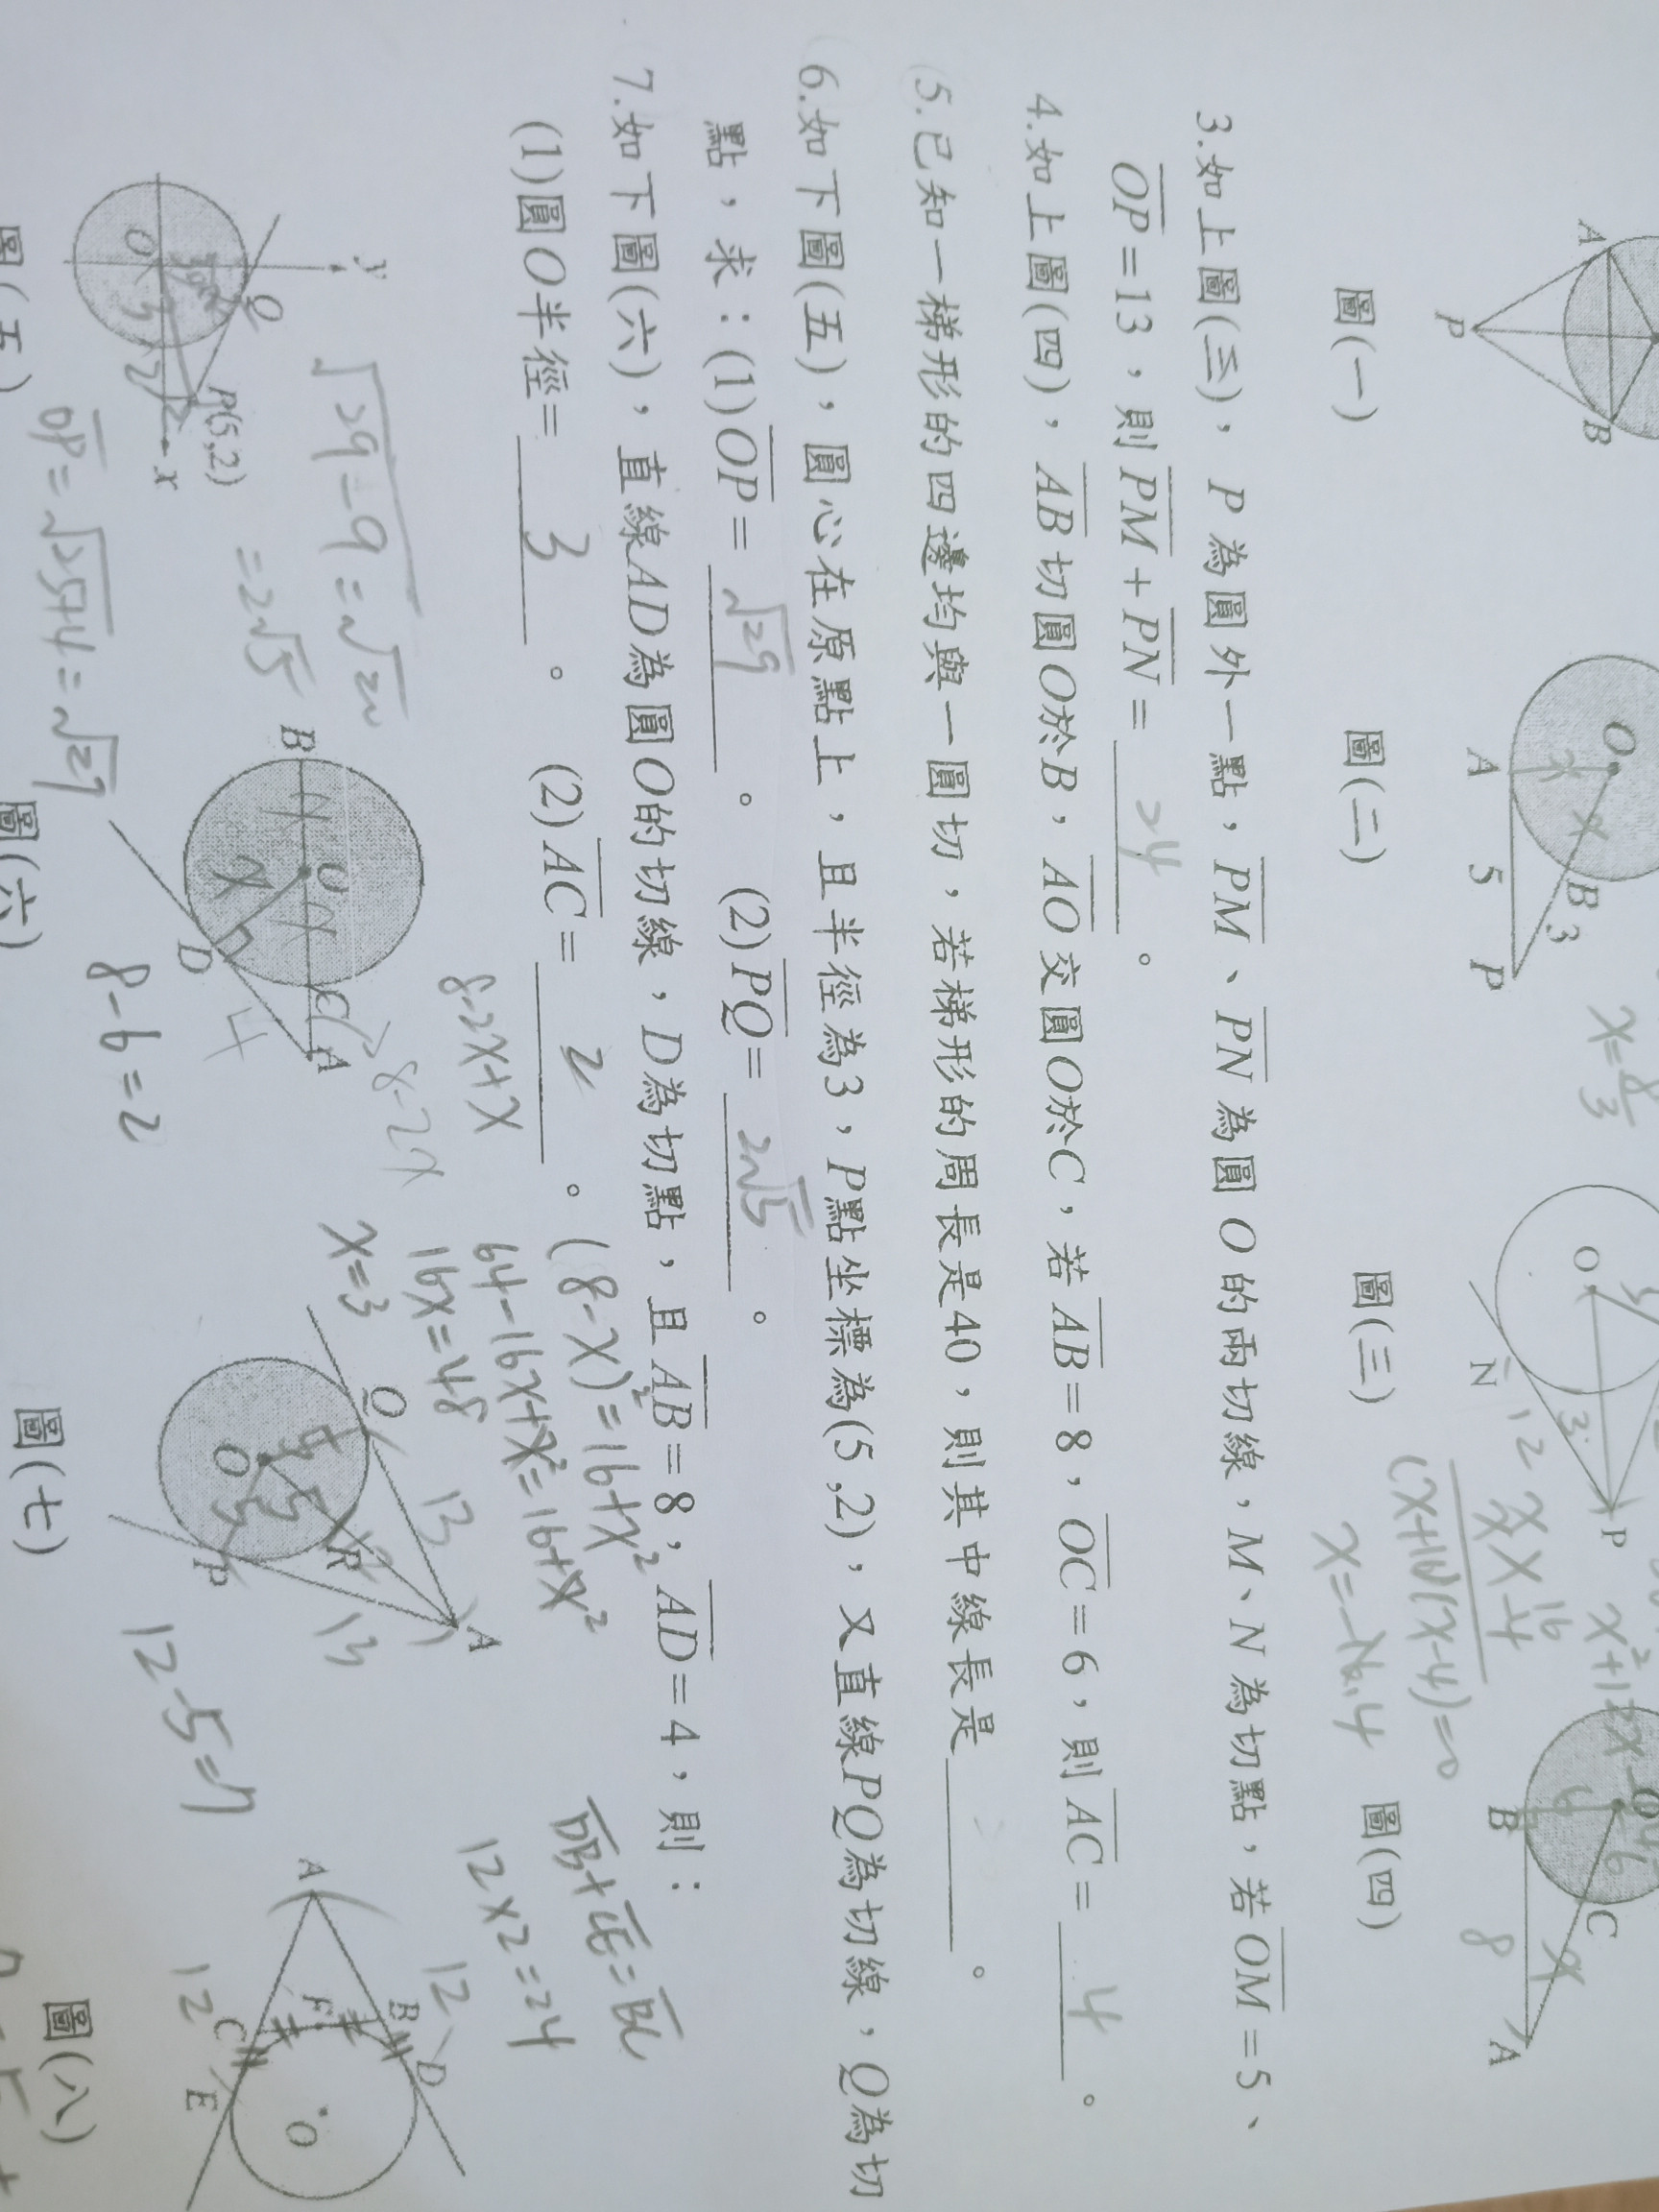 A
B
P
O
x
x
B
3
A
5
P
x=8/3
O
N
12
13
P
(x+16)(x-4)=0
x=-16,4
6
6
B
C
x
8
A
圖(一)
圖(二)
圖(三)
圖(四)
3.如上圖(三)，P為圓外一點，PM、PN為圓O的兩切線，M、N為切點，若OM=5、
OP=13，則PM+PN= 24 。
4.如上圖(四)，AB切圓O於B，AO交圓O於C，若AB=8，OC=6，則AC= 4 。
5.已知一梯形的四邊均與一圓切，若梯形的周長是40，則其中線長是 。
6.如下圖(五)，圓心在原點上，且半徑為3，P點坐標為(5,2)，又直線PQ為切線，Q為切
點，求：(1)OP= √29 。 (2)PQ= 2√5 。
7.如下圖(六)，直線AD為圓O的切線，D為切點，且AB=8，AD=4，則：
(1)圓O半徑= 3 。 (2)AC= 2 。
(8-x)²=16+x²
64-16x+x²=16+x²
16x=48
x=3
8-2x+x
8-2x
DB+CE=BC
12×2=24
√29-9=√20
=2√5
OP=√25+4=√29
y
Q
O
3
2
P(5,2)
x
B
x
O
x
x
C
A
D
4
8-6=2
Q
13
O
5
5
5
R
A
P
13
12-5=7
A
12
B
D
F
C
12
E
O
圖(五)
圖(六)
圖(七)
圖(八)